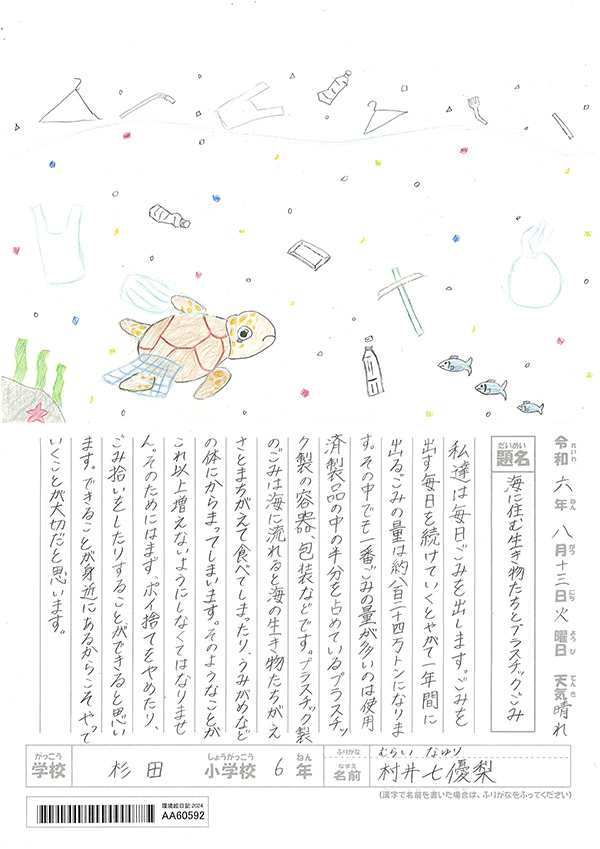 令和六年八月十三日火曜日 天気晴れ
れいわ ねん がつ にち ようび てんき
だいめい
題名 海に住む生き物たちとプラスチックごみ
私達は毎日ごみを出します。ごみを
出す毎日を続けていくとやがて一年間に
出るごみの量は約八百二十四万トンになりま
す。その中でも一番ごみの量が多いのは使用
済製品の中の半分を占めているプラスチッ
ク製の容器、包装などです。プラスチック製
のごみは海に流れると海の生き物たちがえ
さとまちがえて食べてしまったり、うみがめなど
の体にからまってしまいます。そのようなことが
これ以上増えないようにしなくてはなりませ
ん。そのためにはまず、ポイ捨てをやめたり、
ごみ拾いをしたりすることができると思い
ます。できることが身近にあるからこそやって
いくことが大切だと思います。
がっこう しょうがっこう ねん
学校 杉田 小学校 6年
ふりがな むらい なゆり
なまえ
名前 村井七優梨
(漢字で名前を書いた場合は、ふりがなをふってください)
環境絵日記 2024
AA60592